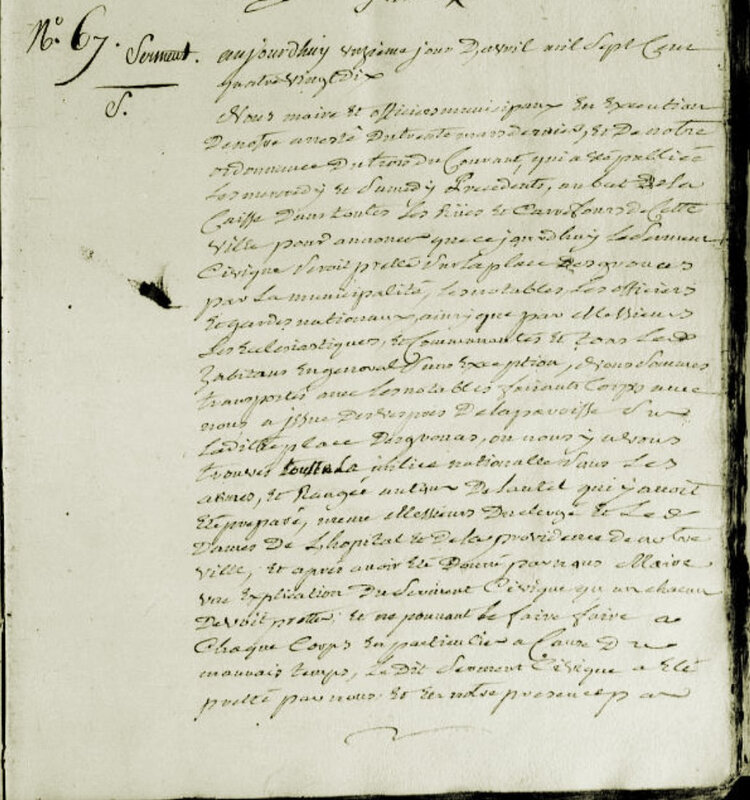 N.° 67. Serment.
S.
aujourdhuy unzieme jour Davril mil Sept Cent
quatrevingt Dix
Nous maire et officiers municipaux En Execution
De notre arresté Du trente mars dernier, et De notre
ordonnance Du trois du Courant, qui a eté publiée
Les mercredy et Samedy Precedents, au bruit De la
Caisse Dans toutes Les Rües et Carrefours de Cette
Ville pour annoncer que cejourdhuy Le Serment
Civique Seroit pretté Sur La place
par La municipalité, Les notables, Les officiers
et gardes nationaux, ainsi que par Messieurs
Les Eclesiastiques, et Communautés et tous Les
habitans En general Sans Exception, Nous Sommes
transportés avec Les notables faisants Corps avec
nous a issue Des vespres De la paroisse Sur
Laditte place, ou nous y avons
trouvés toutte La milice nationalle Sous Les
armes, et Rangée autour De lautel qui y avoit
eté preparé, meme Messieurs Du clergé et Les
Dames De Lhopital et De la providence de notre
Ville, et aprés avoir eté Donné par nous Maire
une Explication Du Serment Civique qu un chacun
Devoit pretter, et ne pouvant le faire faire a
Chaque Corps En particulier a Cause Du
mauvais temps, Le Dit Serment Civique a eté
pretté par nous et En notre presence par